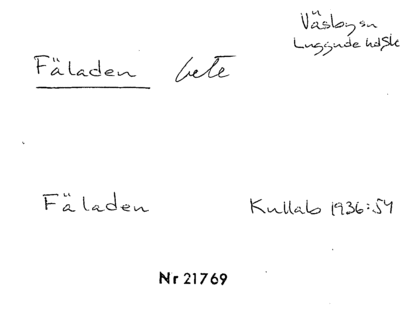 Väsby sn
Luggude hd Sk
Fäladen bete
Fäladen Kullab 1936:54
Nr 21769